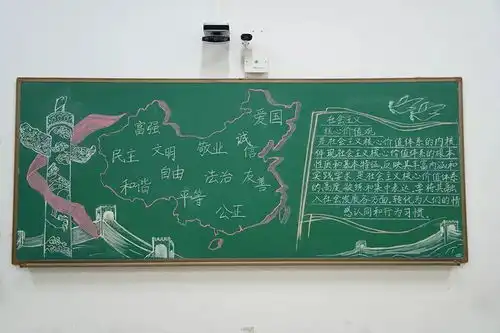 富强
爱国
民主
文明
敬业
诚信
自由
和谐
法治
友善
平等
公正
社会主义
核心价值观
是社会主义核心价值体系的内核
体现社会主义核心价值体系的根本
性质和基本特征,反映其丰富内涵和
实践要求,是社会主义核心价值体系
的高度凝练和集中表达,要将其融
入社会发展各方面,转化为人们的情
感认同和行为习惯.